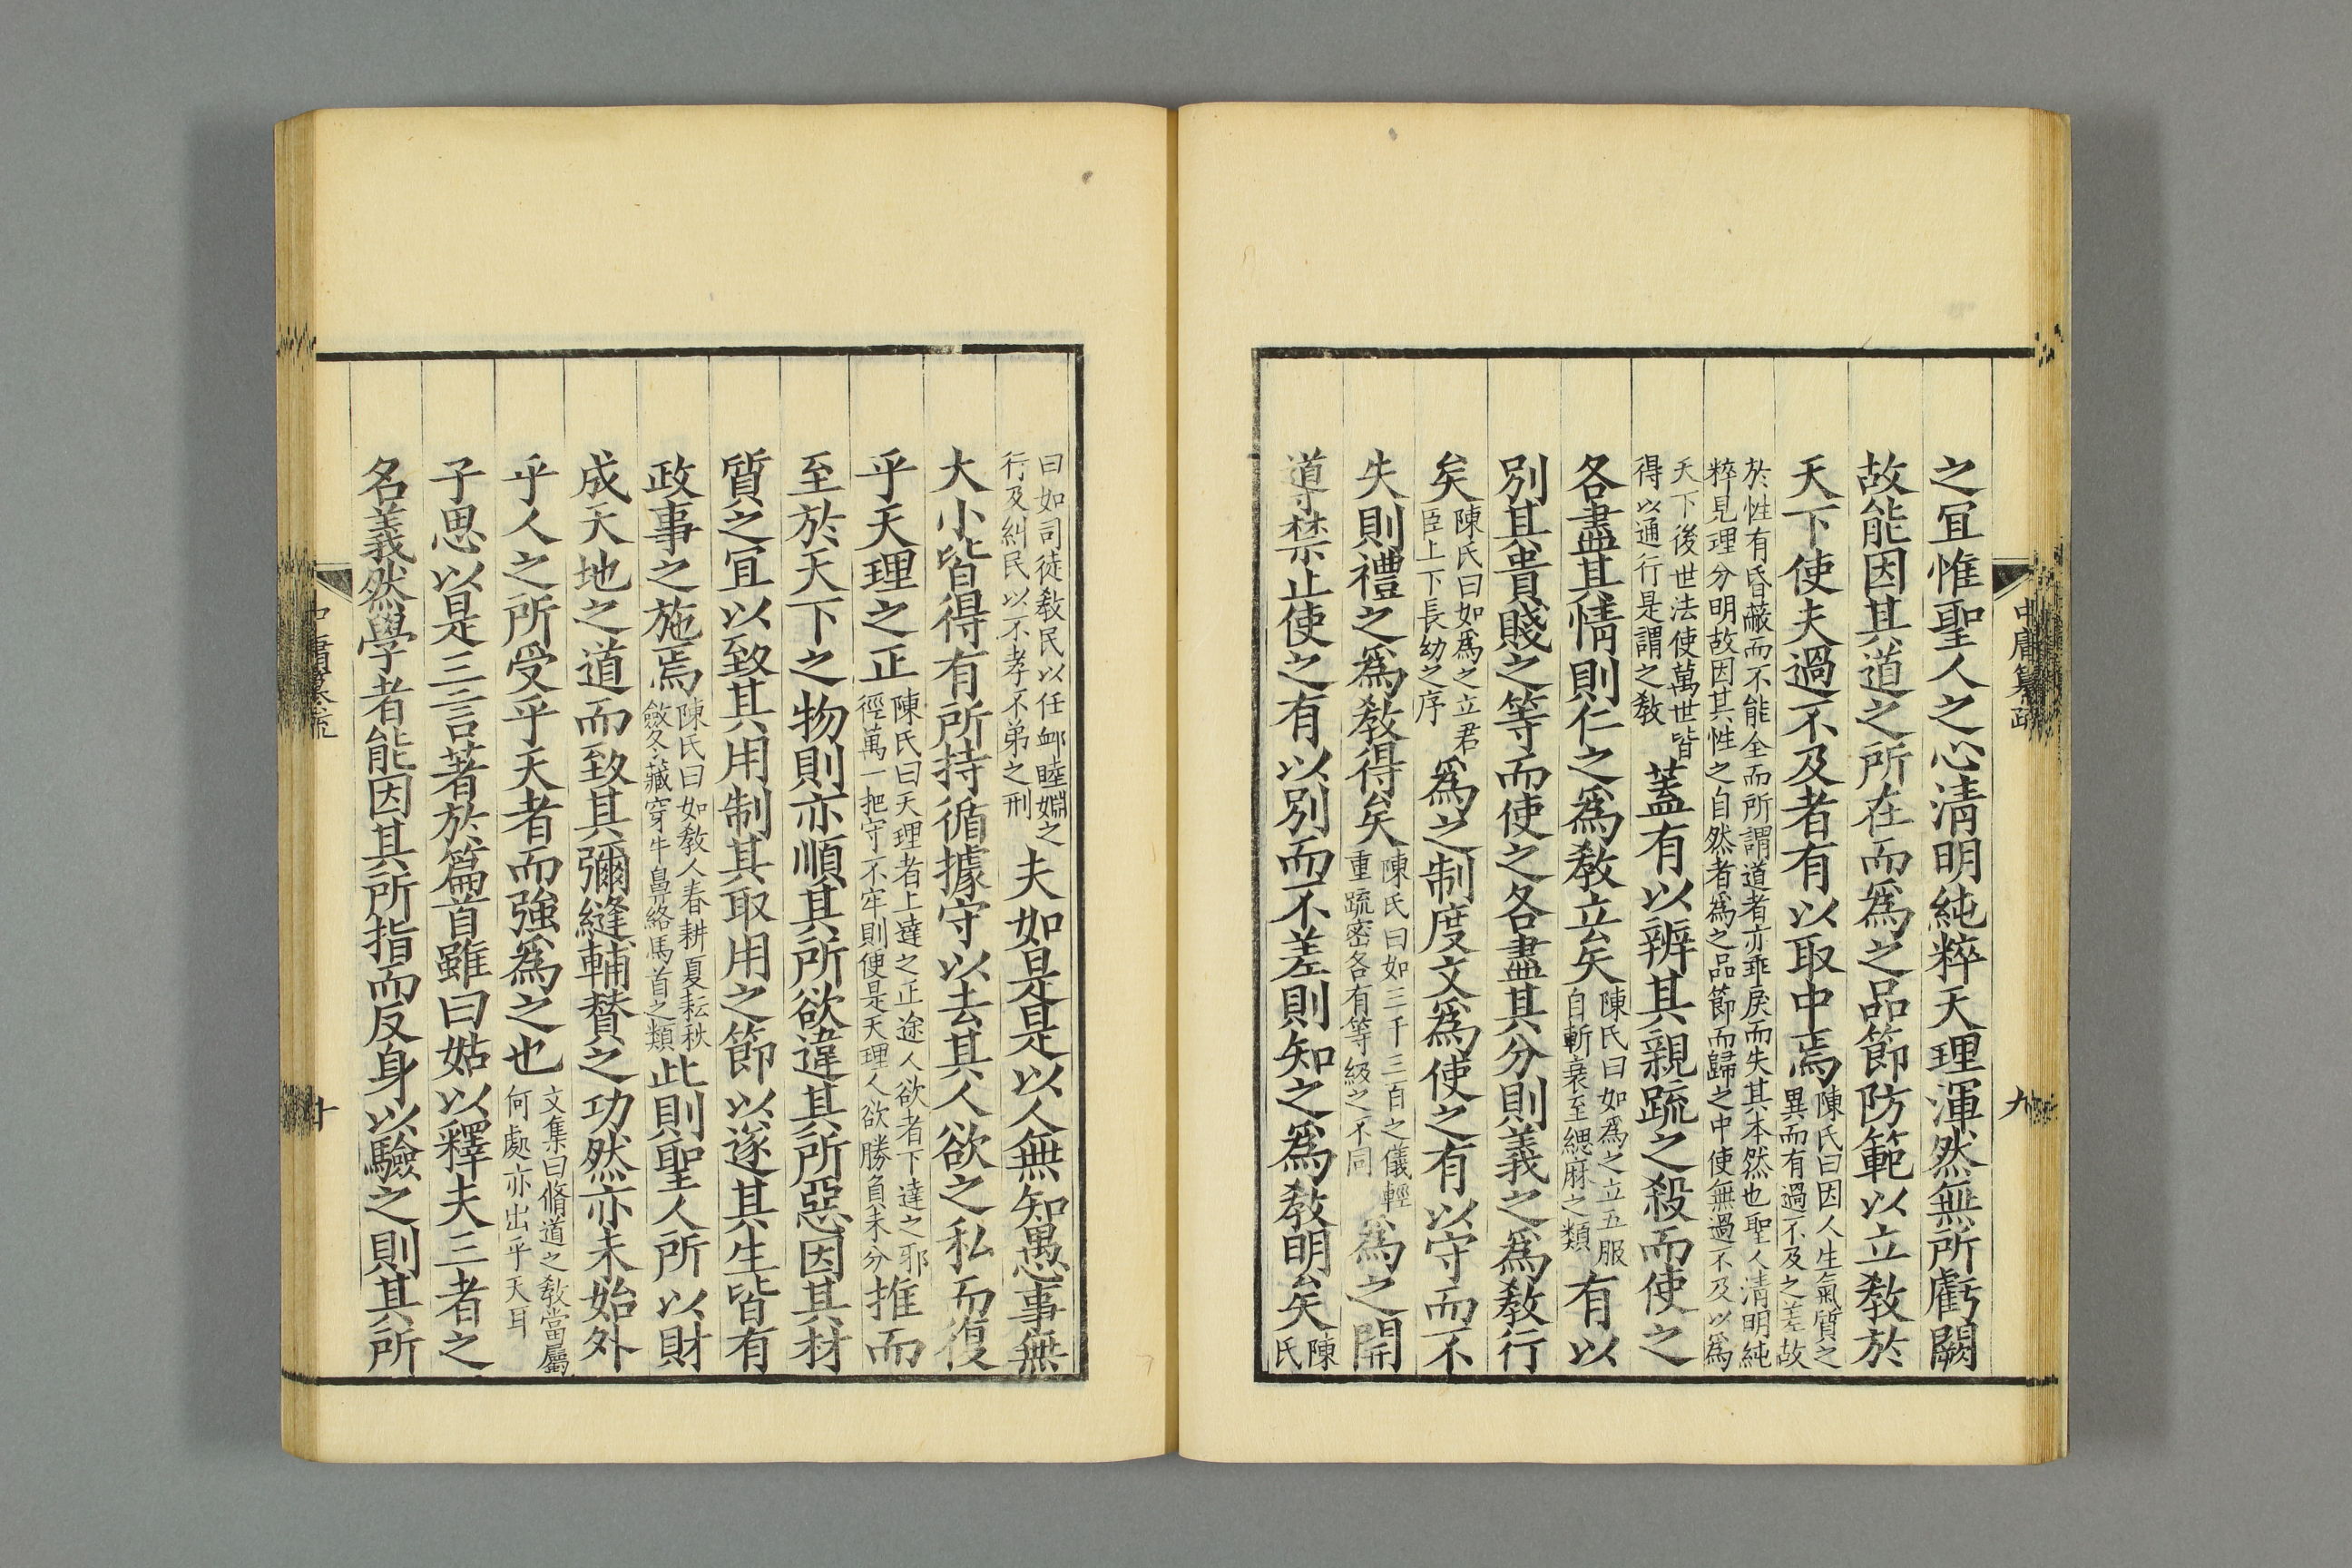 之宜惟聖人之心淸明純粹天理渾然無所虧闕
故能因其道之所在而爲之品節防範以立敎於
天下使夫過不及者有以取中焉陳氏曰因人生氣質之異而有過不及之差故
於性有昏蔽而不能全而所謂道者亦乖戾而失其本然也聖人清明純
粹見理分明故因其性之自然者爲之品節而歸之中使無過不及以爲
天下後世法使萬世皆得以通行是謂之敎蓋有以辨其親疏之殺而使之
各盡其情則仁之爲敎立矣陳氏曰如爲之立五服自斬衰至緦麻之類有以
別其貴賤之等而使之各盡其分則義之爲敎行
矣陳氏曰如爲之立君臣上下長幼之序爲之制度文爲使之有以守而不
失則禮之爲敎得矣陳氏曰如三千三百之儀輕重疏密各有等級之不同爲之開
導禁止使之有以別而不差則知之爲敎明矣陳氏
中庸纂疏
九
曰如司徒敎民以任卹睦婣之行及糾民以不孝不弟之刑夫如是是以人無知愚事無
大小皆得有所持循據守以去其人欲之私而復
乎天理之正陳氏曰天理者上達之正途人欲者下達之邪徑萬一把守不牢則便是天理人欲勝負未分推而
至於天下之物則亦順其所欲違其所惡因其材
質之宜以致其用制其取用之節以遂其生皆有
政事之施焉陳氏曰如敎人春耕夏耘秋斂冬藏穿牛鼻絡馬首之類此則聖人所以財
成天地之道而致其彌縫輔賛之功然亦未始外
乎人之所受乎天者而強爲之也文集曰脩道之敎當屬何處亦出乎天耳
子思以是三言著於篇首雖曰姑以釋夫三者之
名義然學者能因其所指而反身以驗之則其所
中庸纂疏
十